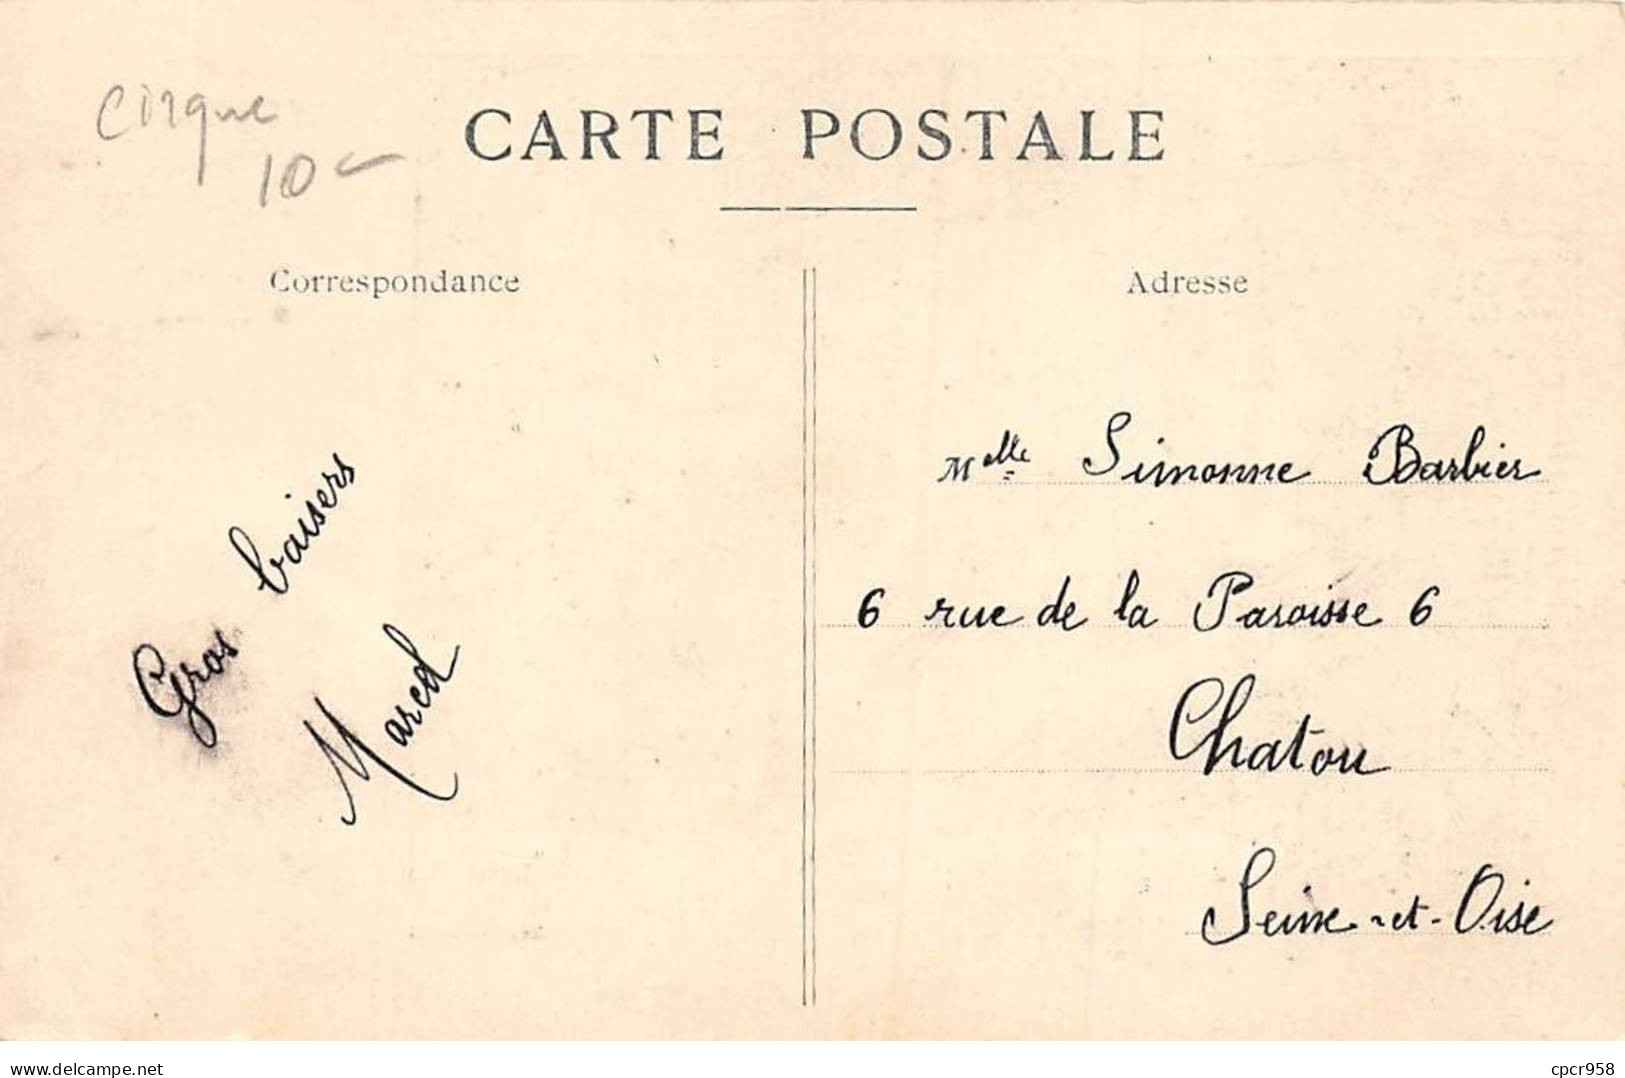 Cirque
10-
CARTE POSTALE
Correspondance
Adresse
Gros baisers
Marcel
Melle Simonne Barbier
6 rue de la Paroisse 6
Chatou
Seine-et-Oise
www.delcampe.net
cpcr958